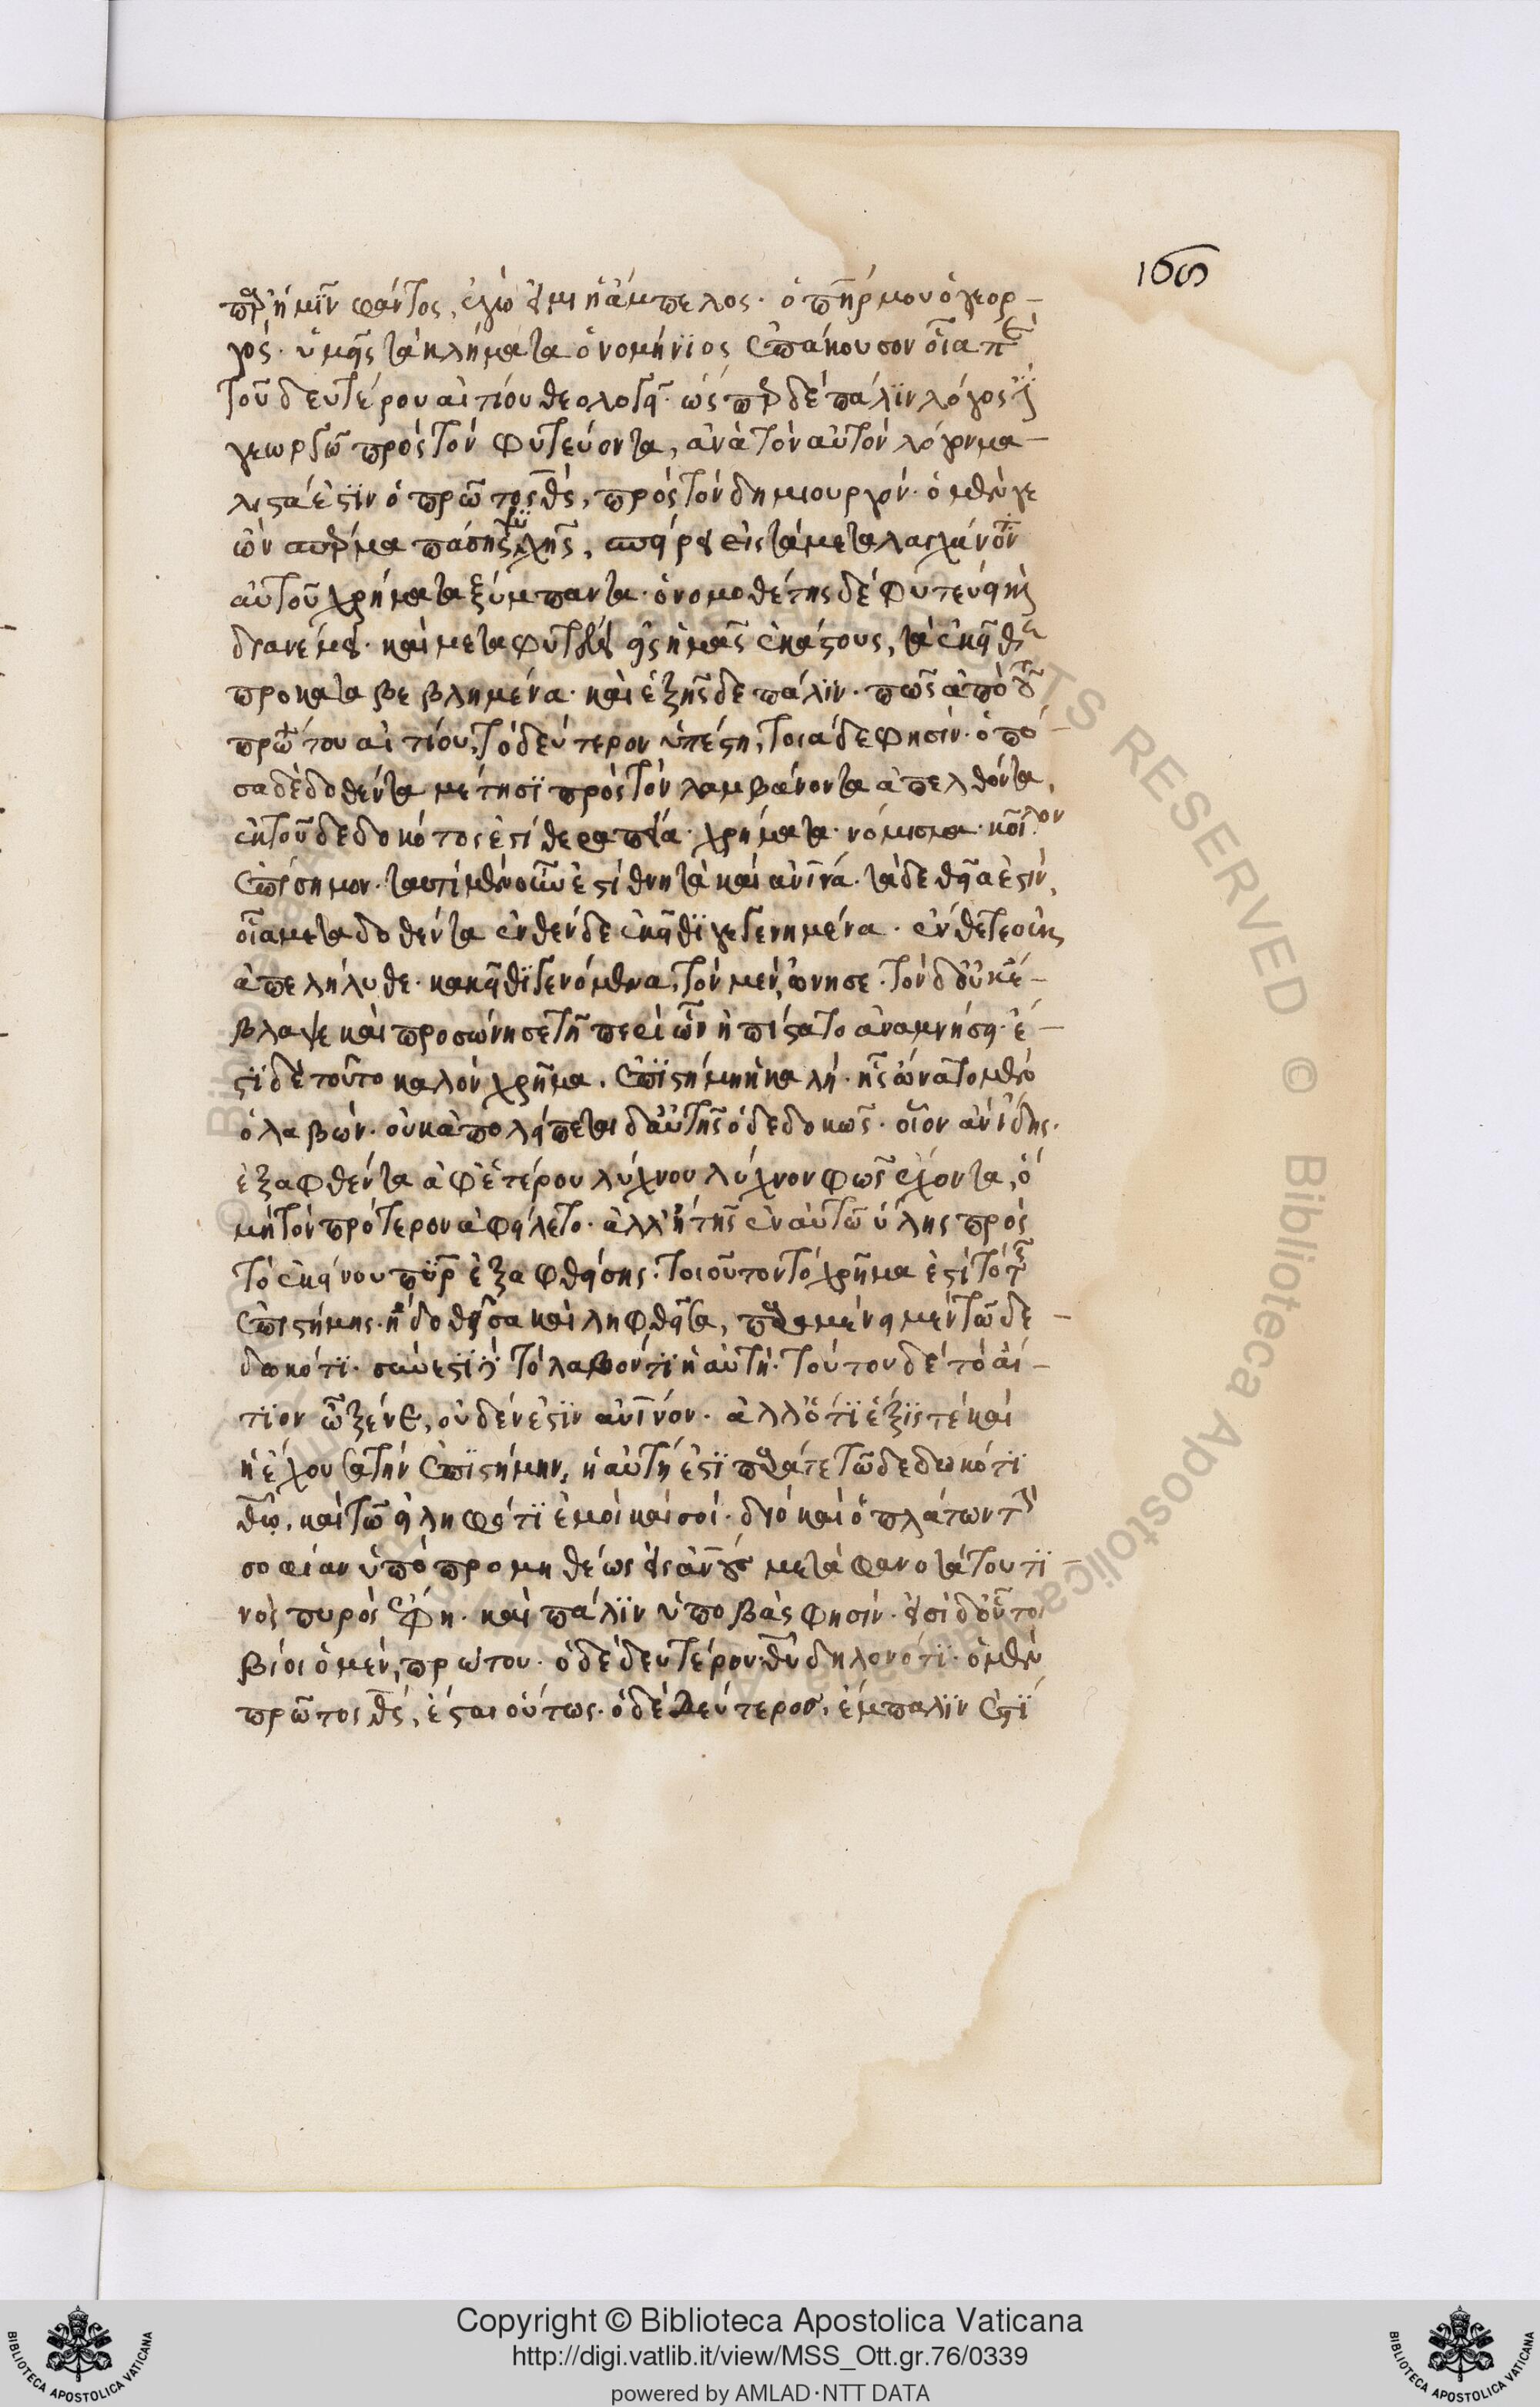 166
παρ' ἡμῖν φάντος, ἐγώ εἰμι ἡ ἄμπελος· ὁ πηρ μου ὁ γεορ-
γός· ὑμεῖς τὰ κλήματα ὁ νομήνϊος ἐπάκουσον οἷα περὶ
τοῦ δευτέρου αἰτίου θεολογεῖ· ὥσπερ δὲ πάλϊν λόγος ἐστὶ
γεωργῶ πρὸς τὸν φυτεύοντα, ἀνὰ τὸν αὐτὸν λόγον μα-
λιστά ἐστϊν ὁ πρῶτος θς, πρὸς τὸν δημιουργόν· ὁ μέν γε
ὢν σπέρμα πάσης ψυχῆς, σπείρει εἰς τὰ μεταλαγχάνοντα
αὐτοῦ χρήματα ξύμπαντα· ὁ νομοθέτης δὲ φυτεύει καὶ
διανέμει· καὶ μεταφυτεύει εἰς ἡμᾶς ἑκάστους, τὰ ἐκεῖθεν
προκαταβεβλημένα· καὶ ἑξῆς δε πάλϊν· πῶς ἀπὸ τοῦ
πρώτου αἰτίου, τὸ δεύτερον ὑπέστη, τοιάδε φησίν· ὁπό-
σα δὲ δοθέντα μέτησϊ πρὸς τὸν λαμβάνοντα ἀπελθόντα,
ἐκ τοῦ δεδοκότος ἐστὶ θεραπεία· χρήματα· νόμισμα· κοῖλον
ἐπίσημον· ταυτὶ μὲν οὖν ἐστὶ θνητὰ καὶ ανινά· τὰ δε θεῖα ἐστὶν,
οἷα μεταδοθέντα ἐνθένδε ἐκεῖθϊ γεγενημένα· ἔνθετε οὐκ
ἀπελήλυθε· κακεῖθϊ γενόμενα, τὸν μὲν, ὤνησε· τὸν δ' οὐκ ἔ-
βλαψε καὶ προσώνησε τῆ περὶ ὧν ἠπίστατο ἀναμνήσει· ἔ-
στϊ δὲ τοῦτο καλὸν χρῆμα, ἐπϊστήμη ἡ καλή· ἧς ὤνατο μὲν
ὁ λαβών· οὐκ ἀπολείπεται δ' αὐτῆς ὁ δεδοκώς· οἷον ἂν ἴδης·
ἐξαφθέντα ἀφ' ἑτέρου λύχνου λύχνον φῶς ἔχοντα, ὃ
μὴ τὸν πρότερον ἀφείλετο· ἀλλ' ἢ τῆς ἐν αὐτῶ ὕλης πρὸς
τὸ ἐκείνου πῦρ ἐξαφθείσης· τοιοῦτον τὸ χρῆμα ἐστὶ τὸ τῆς
ἐπιστήμης· ἣ δοθεῖσα καὶ ληφθεῖσα, παραμένει μὲν τῶ δε
δωκότϊ· σύνεστϊ δὲ τὸ λαβόντϊ ἡ αὐτή· τούτου δὲ τὸ αἴ-
τϊον ὦ ξένε, οὐδέν ἐστϊν ανινόν· ἀλλ' ὅτϊ ἕξϊς τέ καὶ
ἡ ἔχουσα τὴν ἐπϊστήμην, ἡ αὐτή ἐστϊ παρά τε τῶ δεδωκότϊ
θῶ, καὶ τῶ εἰληφότϊ ἐμοὶ καὶ σοί· διὸ καὶ ὁ πλάτων τὴν
σοφίαν ὑπὸ προμηθέως εἰς ανους μετὰ φανοτάτου τϊ
νὸς πυρὸς ἔφη· καὶ πάλϊν ὑποβὰς φησίν· εἰσὶ δ' οὗτοι
βίοι ὁ μὲν, πρώτου· ὁ δὲ δευτέρου θυ δηλονότϊ· ὁ μὲν
πρῶτος θς, ἔσται οὕτως· ὁ δὲ δεύτερος, ἔμπαλϊν ἐστϊ
Copyright © Biblioteca Apostolica Vaticana
http://digi.vatlib.it/view/MSS_Ott.gr.76/0339
powered by AMLAD·NTT DATA